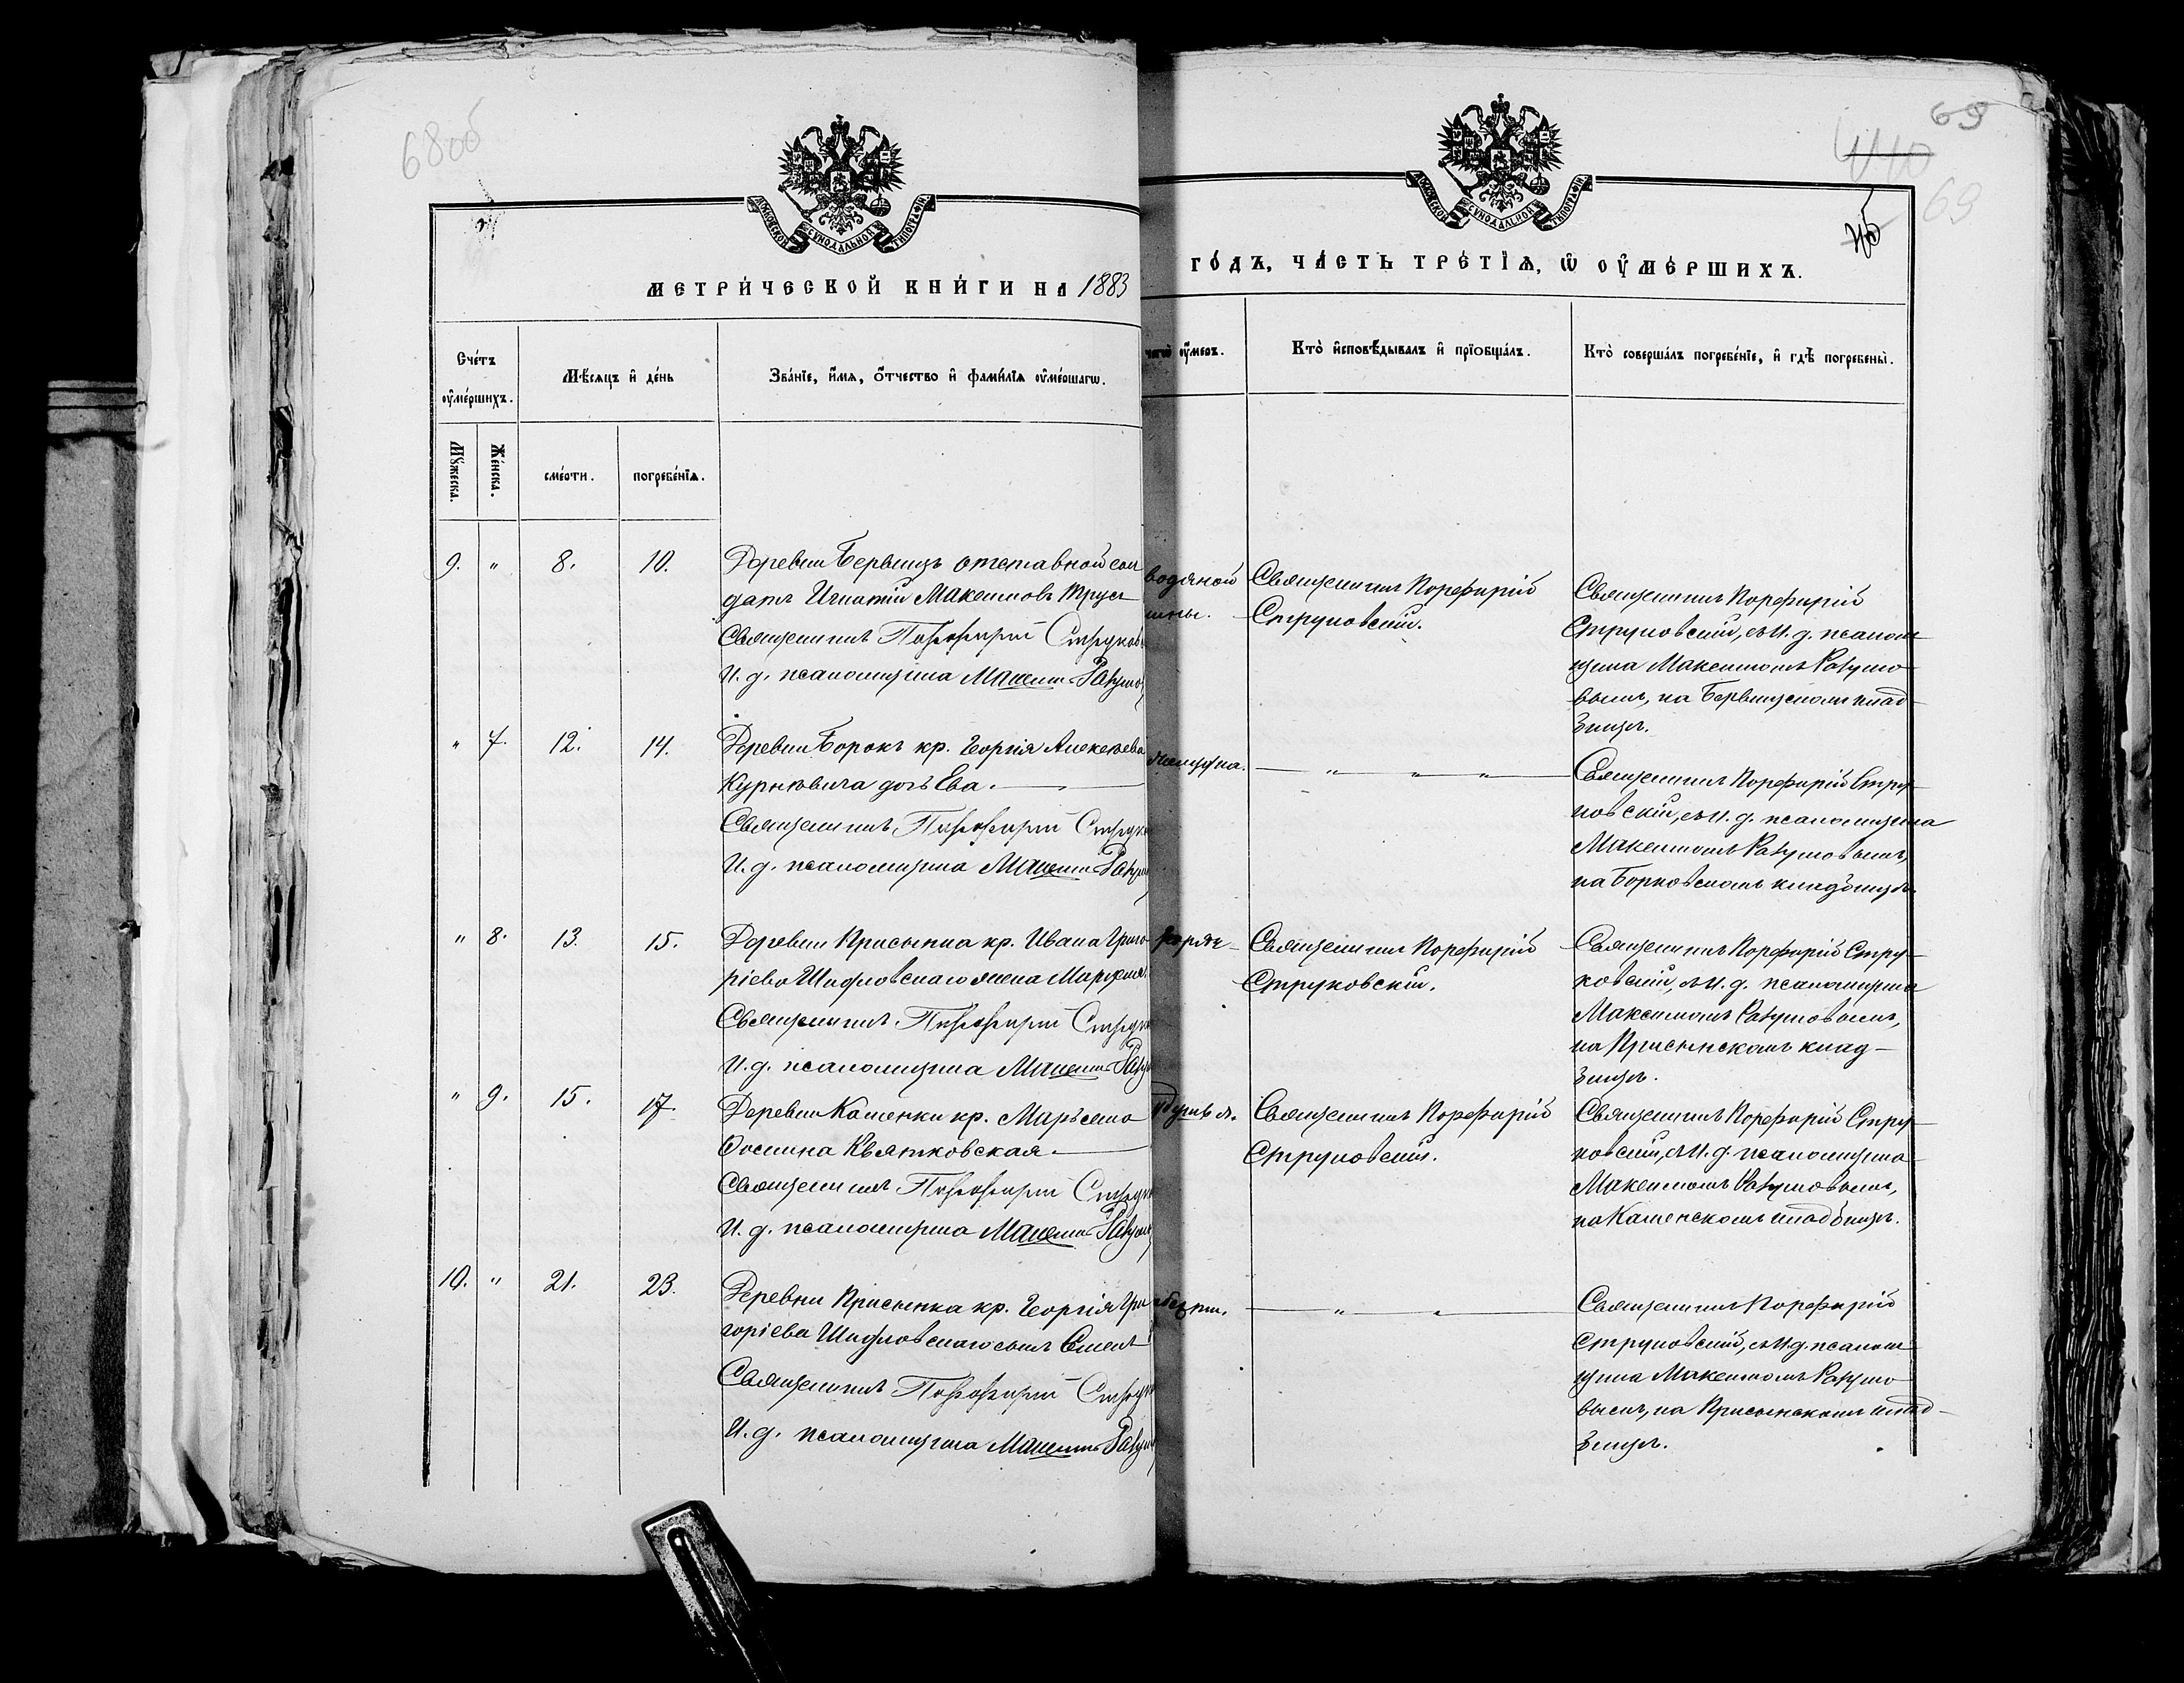 68об
69
69
МОСКОВСКОЙ СУНОДАЛЬНОЙ ТИПОГРАФІИ
МОСКОВСКОЙ СУНОДАЛЬНОЙ ТИПОГРАФІИ
МЕТРИ́ЧЕСКОЙ КНИ́ГИ НА 1883
ГО́ДЪ, ЧА́СТЬ ТРЕ́ТІѦ, Ѿ ОУ҆МЕ́РШИХЪ.
Сче́тъ
оу҆ме́ршихъ.
Мѣ́сѧцъ и҆ де́нь
Зва́нїе, и҆́мѧ, ѻ҆́тчество и҆ фами́лїѧ оу҆ме́ршагѡ.
чегѡ̀ оу҆́меръ.
Кто̀ и҆сповѣ́дывалъ и҆ прїобща́лъ.
Кто̀ соверша́лъ погребе́нїе, и҆ гдѣ̀ погребены̀.
Мꙋ́жеска.
Же́нска.
сме́рти.
погребе́нїѧ.
9. " 8. 10.
Деревни Бервищъ отставной сол
датъ Игнатій Максимовъ Трус
Священникъ Порфирій Струков
И. д. псаломщика Максимъ
водяной
Священникъ Порфирій
Струковскій.
Священникъ Порфирій
Струковскій, съ И. д. псалом
щика Максимомъ
вымъ, на Бервищскомъ клад
бищѣ.
" 7. 12. 14.
Деревни Борокъ кр. Георгія Алексѣева
Курновича дочь Ева.
Священникъ Порфирій Струк
И. д. псаломщика Максимъ
" " "
Священникъ Порфирій Стру
ковскій, съ И. д. псаломщика
Максимомъ
на Борковскомъ кладбищѣ.
" 8. 13. 15.
Деревни Присынка кр. Ивана Григо
ріева Шидловскаго жена
Священникъ Порфирій Струк
И. д. псаломщика Максимъ
Священникъ Порфирій
Струковскій.
Священникъ Порфирій Стру
ковскій, съ И. д. псаломщика
Максимомъ
на Присынскомъ клад-
бищѣ.
" 9. 15. 17.
Деревни Каменки кр. Марьяна
Осипова Квятковская.
Священникъ Порфирій Струк
И. д. псаломщика Максимъ
Священникъ Порфирій
Струковскій.
Священникъ Порфирій Стру
ковскій, съ И. д. псаломщика
Максимомъ
на Каменскомъ кладбищѣ.
10. " 21. 23.
Деревни Присынка кр. Георгія Гри
горіева Шидловскаго сынъ
Священникъ Порфирій Струк
И. д. псаломщика Максимъ
" "
Священникъ Порфирій
Струковскій, съ И. д. псалом
щика Максимомъ
вымъ, на Присынскомъ клад-
бищѣ.